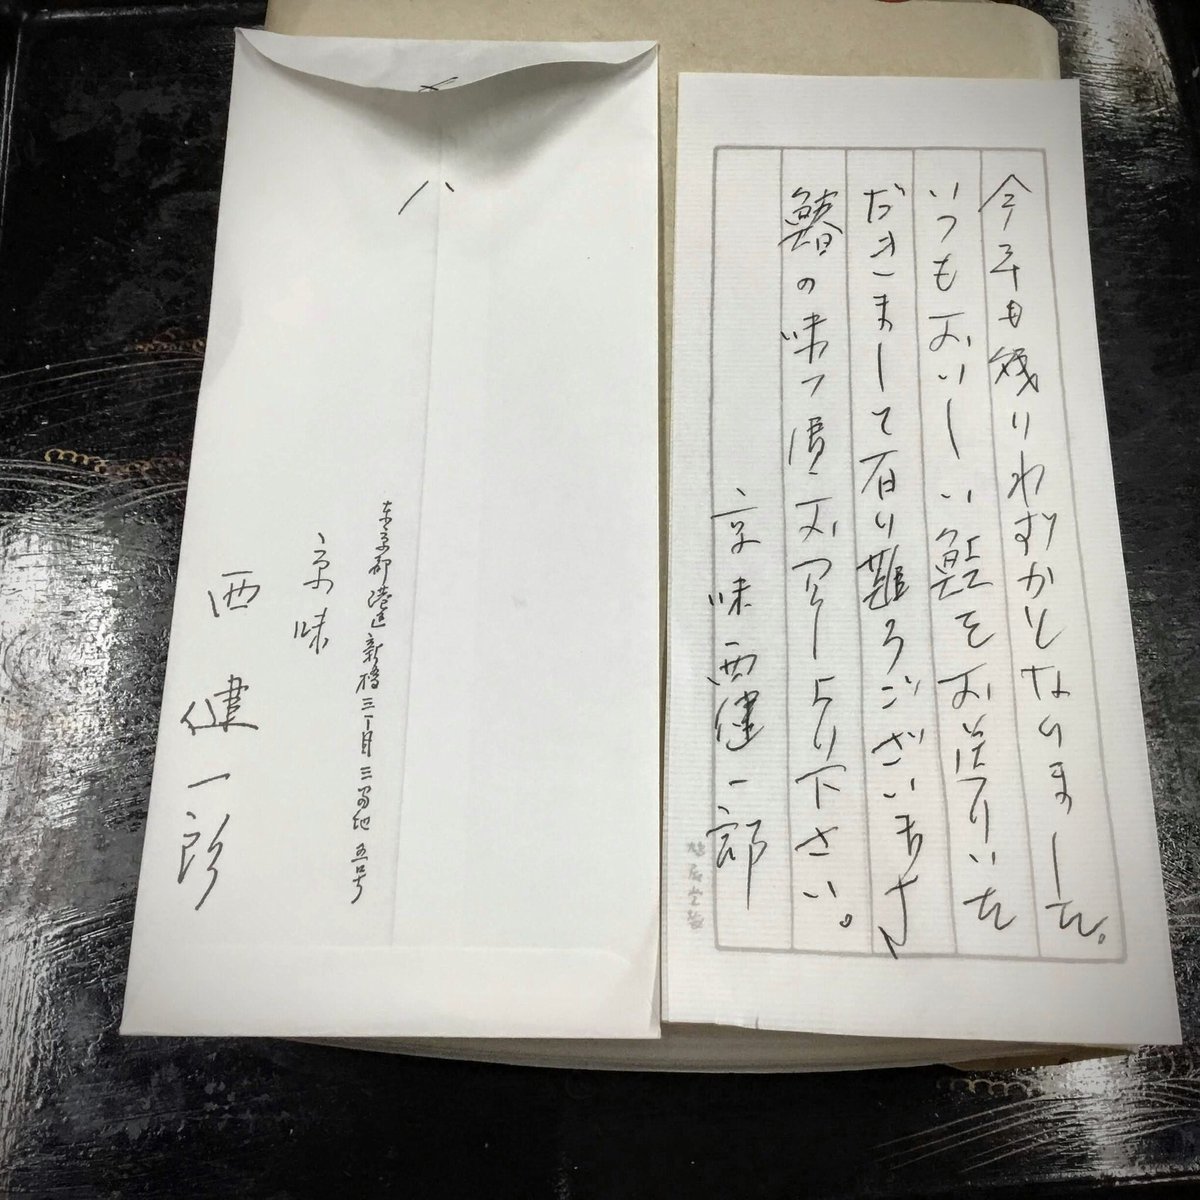 今年も残りわずかとなりました。
いつもおいしい鮭をお送りいた
だきまして有り難うございます
鰆の味ソ漬お召し上り下さい。
京味西健一郎
鳩居堂製
東京都港区新橋三丁目三番地五号
京味
西健一郎